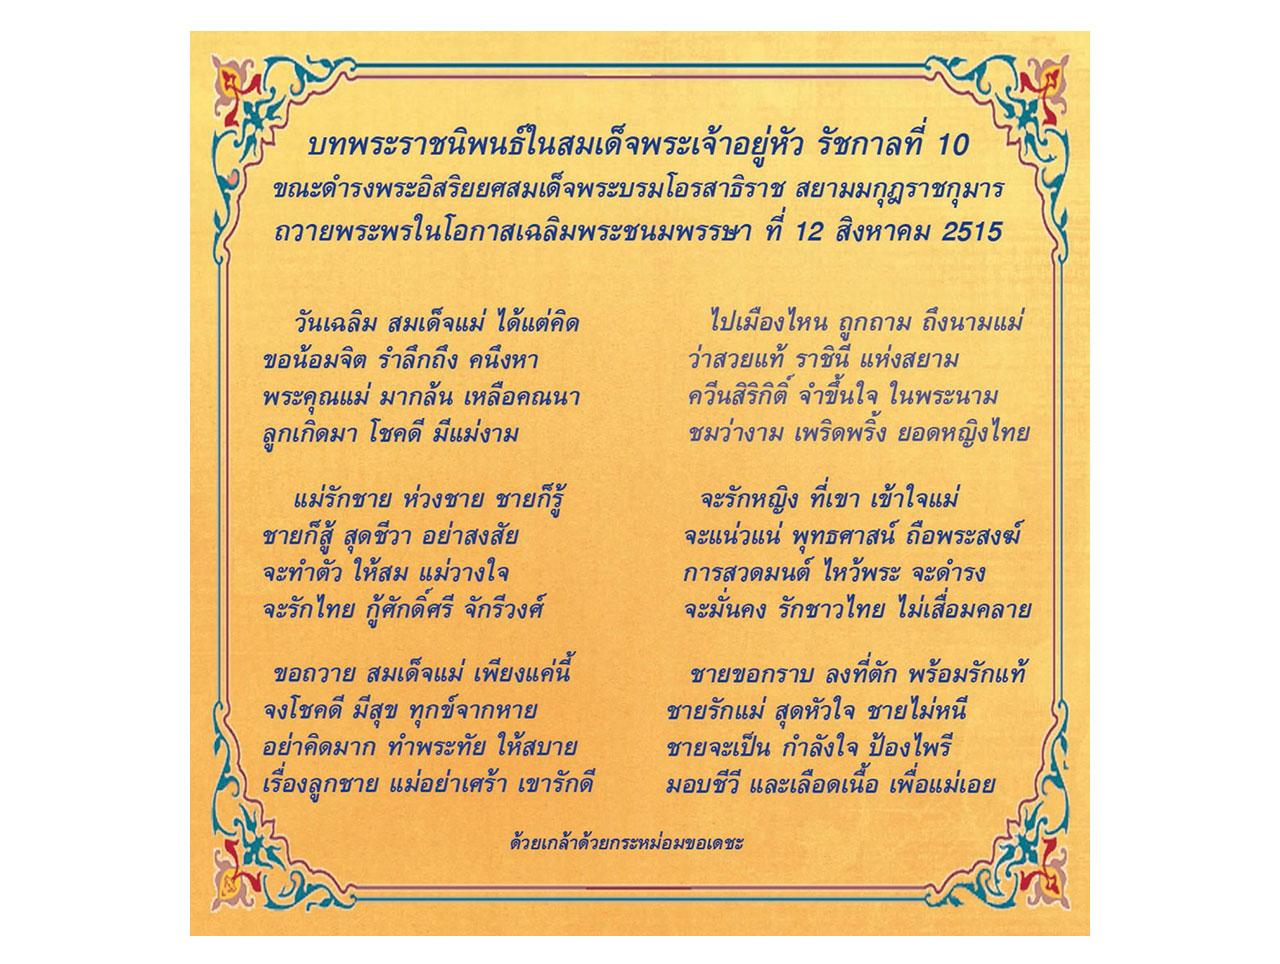 บทพระราชนิพนธ์ในสมเด็จพระเจ้าอยู่หัว รัชกาลที่ 10
ขณะดำรงพระอิสริยยศสมเด็จพระบรมโอรสาธิราช สยามมกุฎราชกุมาร
ถวายพระพรในโอกาสเฉลิมพระชนมพรรษา ที่ 12 สิงหาคม 2515
วันเฉลิม สมเด็จแม่ ได้แต่คิด
ขอน้อมจิต รำลึกถึง คนึงหา
พระคุณแม่ มากล้น เหลือคณนา
ลูกเกิดมา โชคดี มีแม่งาม
ไปเมืองไหน ถูกถาม ถึงนามแม่
ว่าสวยแท้ ราชินี แห่งสยาม
ควีนสิริกิติ์ จำขึ้นใจ ในพระนาม
ชมว่างาม เพริดพริ้ง ยอดหญิงไทย
แม่รักชาย ห่วงชาย ชายก็รู้
ชายก็สู้ สุดชีวา อย่าสงสัย
จะทำตัว ให้สม แม่วางใจ
จะรักไทย กู้ศักดิ์ศรี จักรีวงศ์
จะรักหญิง ที่เขา เข้าใจแม่
จะแน่วแน่ พุทธศาสน์ ถือพระสงฆ์
การสวดมนต์ ไหว้พระ จะดำรง
จะมั่นคง รักชาวไทย ไม่เสื่อมคลาย
ขอถวาย สมเด็จแม่ เพียงแค่นี้
จงโชคดี มีสุข ทุกข์จากหาย
อย่าคิดมาก ทำพระทัย ให้สบาย
เรื่องลูกชาย แม่อย่าเศร้า เขารักดี
ชายขอกราบ ลงที่ตัก พร้อมรักแท้
ชายรักแม่ สุดหัวใจ ชายไม่หนี
ชายจะเป็น กำลังใจ ป้องไพรี
มอบชีวี และเลือดเนื้อ เพื่อแม่เอย
ด้วยเกล้าด้วยกระหม่อมขอเดชะ